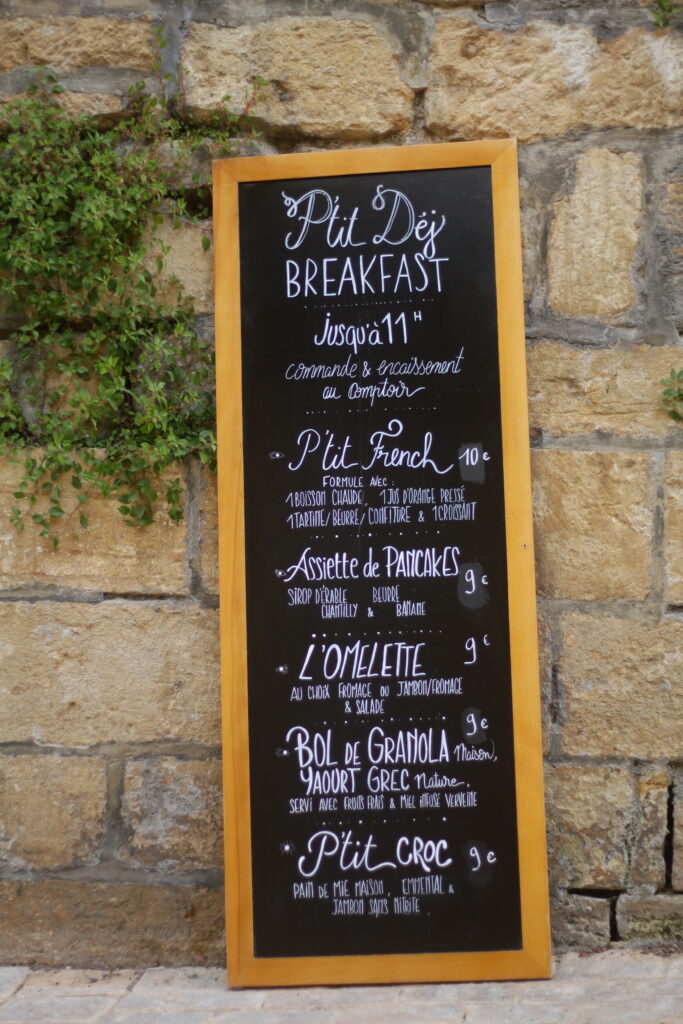 P'tit Déj
BREAKFAST
jusqu'à 11H
commande & encaissement
au comptoir
P'tit French 10€
FORMULE AVEC :
1 BOISSON CHAUDE, 1 JUS D'ORANGE PRESSÉ
1 TARTINE/BEURRE/CONFITURE & 1 CROISSANT
Assiette de PANCAKES 9€
SIROP D'ÉRABLE BEURRE
CHANTILLY & BANANE
L'OMELETTE 9€
AU CHOIX FROMAGE OU JAMBON/FROMAGE
& SALADE
9€
BOL DE GRANOLA Maison,
YAOURT GREC Nature,
SERVI AVEC FRUITS FRAIS & MIEL INFUSÉ VERVEINE
P'tit CROC 9€
PAIN DE MIE MAISON, EMMENTAL &
JAMBON SANS NITRITE.